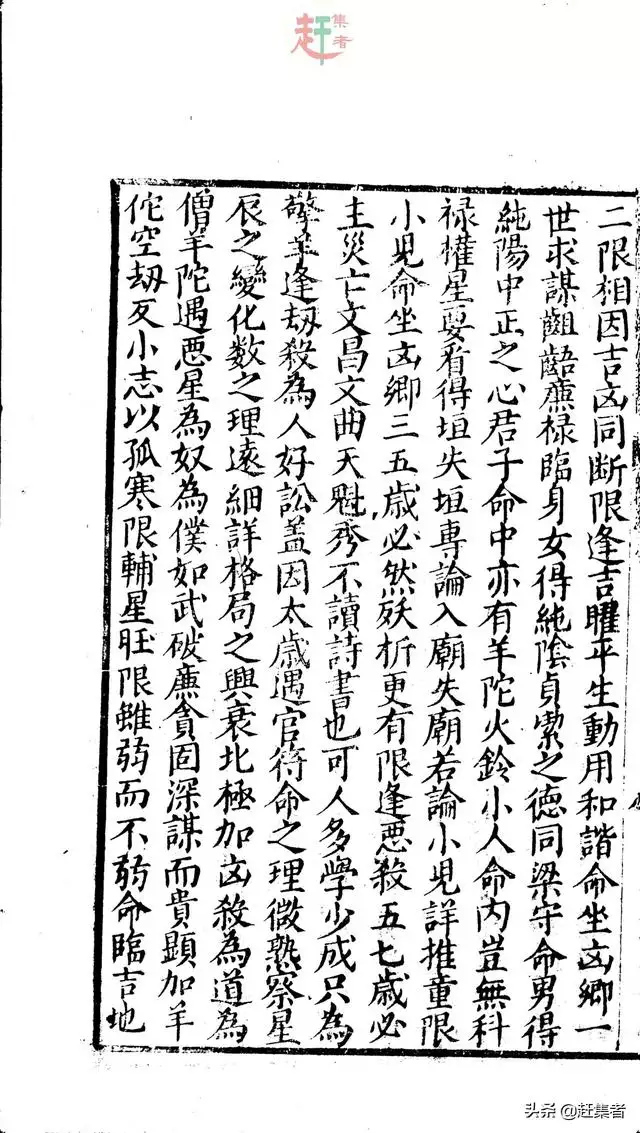 赶集者
二限相因吉凶同断限逢吉曜平生動用和諧命坐凶鄉一
世求謀齟齬廉祿臨身女得純陰貞潔之德同梁守命男得
純陽中正之心君子命中亦有羊陀火鈴小人命内豈無科
祿權星要看得垣失垣專論入廟失廟若論小児詳推童限
小児命坐凶鄉三五歲必然殀折更有限逢惡殺五七歲必
主災亡文昌文曲天魁秀不讀詩書也可人多學少成只為
擎羊逢刼殺為人好訟盖因太歲遇官符命之理微熟察星
辰之變化数之理遠細詳格局之興衰北極加凶殺為道為
僧羊陀遇惡星為奴為僕如武破廉貪固深謀而貴顯加羊
佗空刼反小志以孤寒限輔星旺限雖弱而不弱命臨吉地
头条 @赶集者